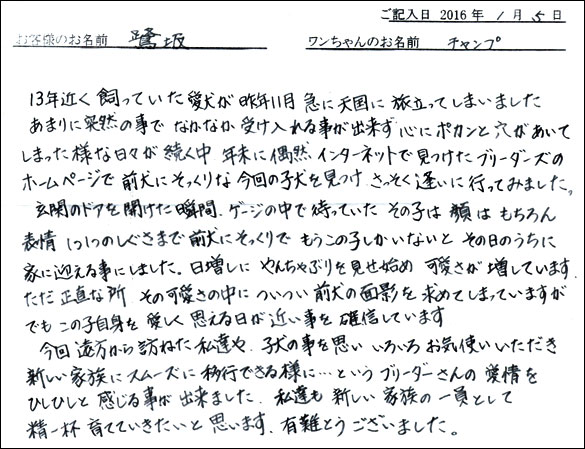 ご記入日 2016 年 1 月 5 日
お客様のお名前 鷺坂 ワンちゃんのお名前 チャンプ
13年近く飼っていた愛犬が昨年11月急に天国に旅立ってしまいました
あまりに突然の事でなかなか受け入れる事が出来ず心にポカンと穴があいて
しまった様な日々が続く中 年末に偶然インターネットで見つけたブリーダーズの
ホームページで前犬にそっくりな今回の子犬を見つけさっそく逢いに行ってみました。
玄関のドアを開けた瞬間、ゲージの中で待っていたその子は顔はもちろん
表情1つ1つのしぐさまで前犬にそっくりでもうこの子しかいないとその日のうちに
家に迎える事にしました。日増しにやんちゃぶりを見せ始め可愛さが増しています。
ただ正直な所 その可愛さの中についつい前犬の面影を求めてしまっていますが
でもこの子自身を愛しく思える日が近い事を確信しています
今回遠方から訪ねた私達や、子犬の事を思いいろいろお気使いいただき
新しい家族にスムーズに移行できる様に…というブリーダーさんの愛情を
ひしひしと感じる事が出来ました。私達も新しい家族の一員として
精一杯育てていきたいと思います。有難とうございました。